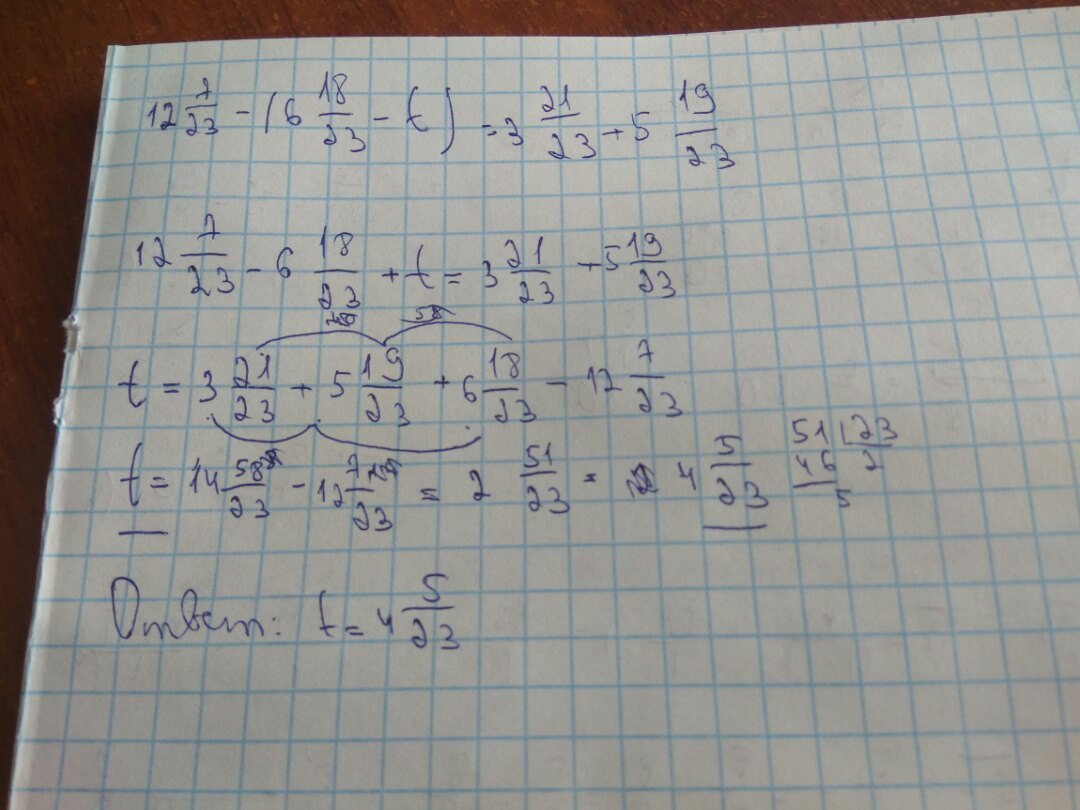 12 7/23 - (6 18/23 - t) = 3 21/23 + 5 19/23
12 7/23 - 6 18/23 + t = 3 21/23 + 5 19/23
58
t = 3 21/23 + 5 19/23 + 6 18/23 - 12 7/23
t = 14 58/23 - 12 7/23 = 2 51/23 = 4 5/23
51 23
46 2
5
Ответ: t = 4 5/23